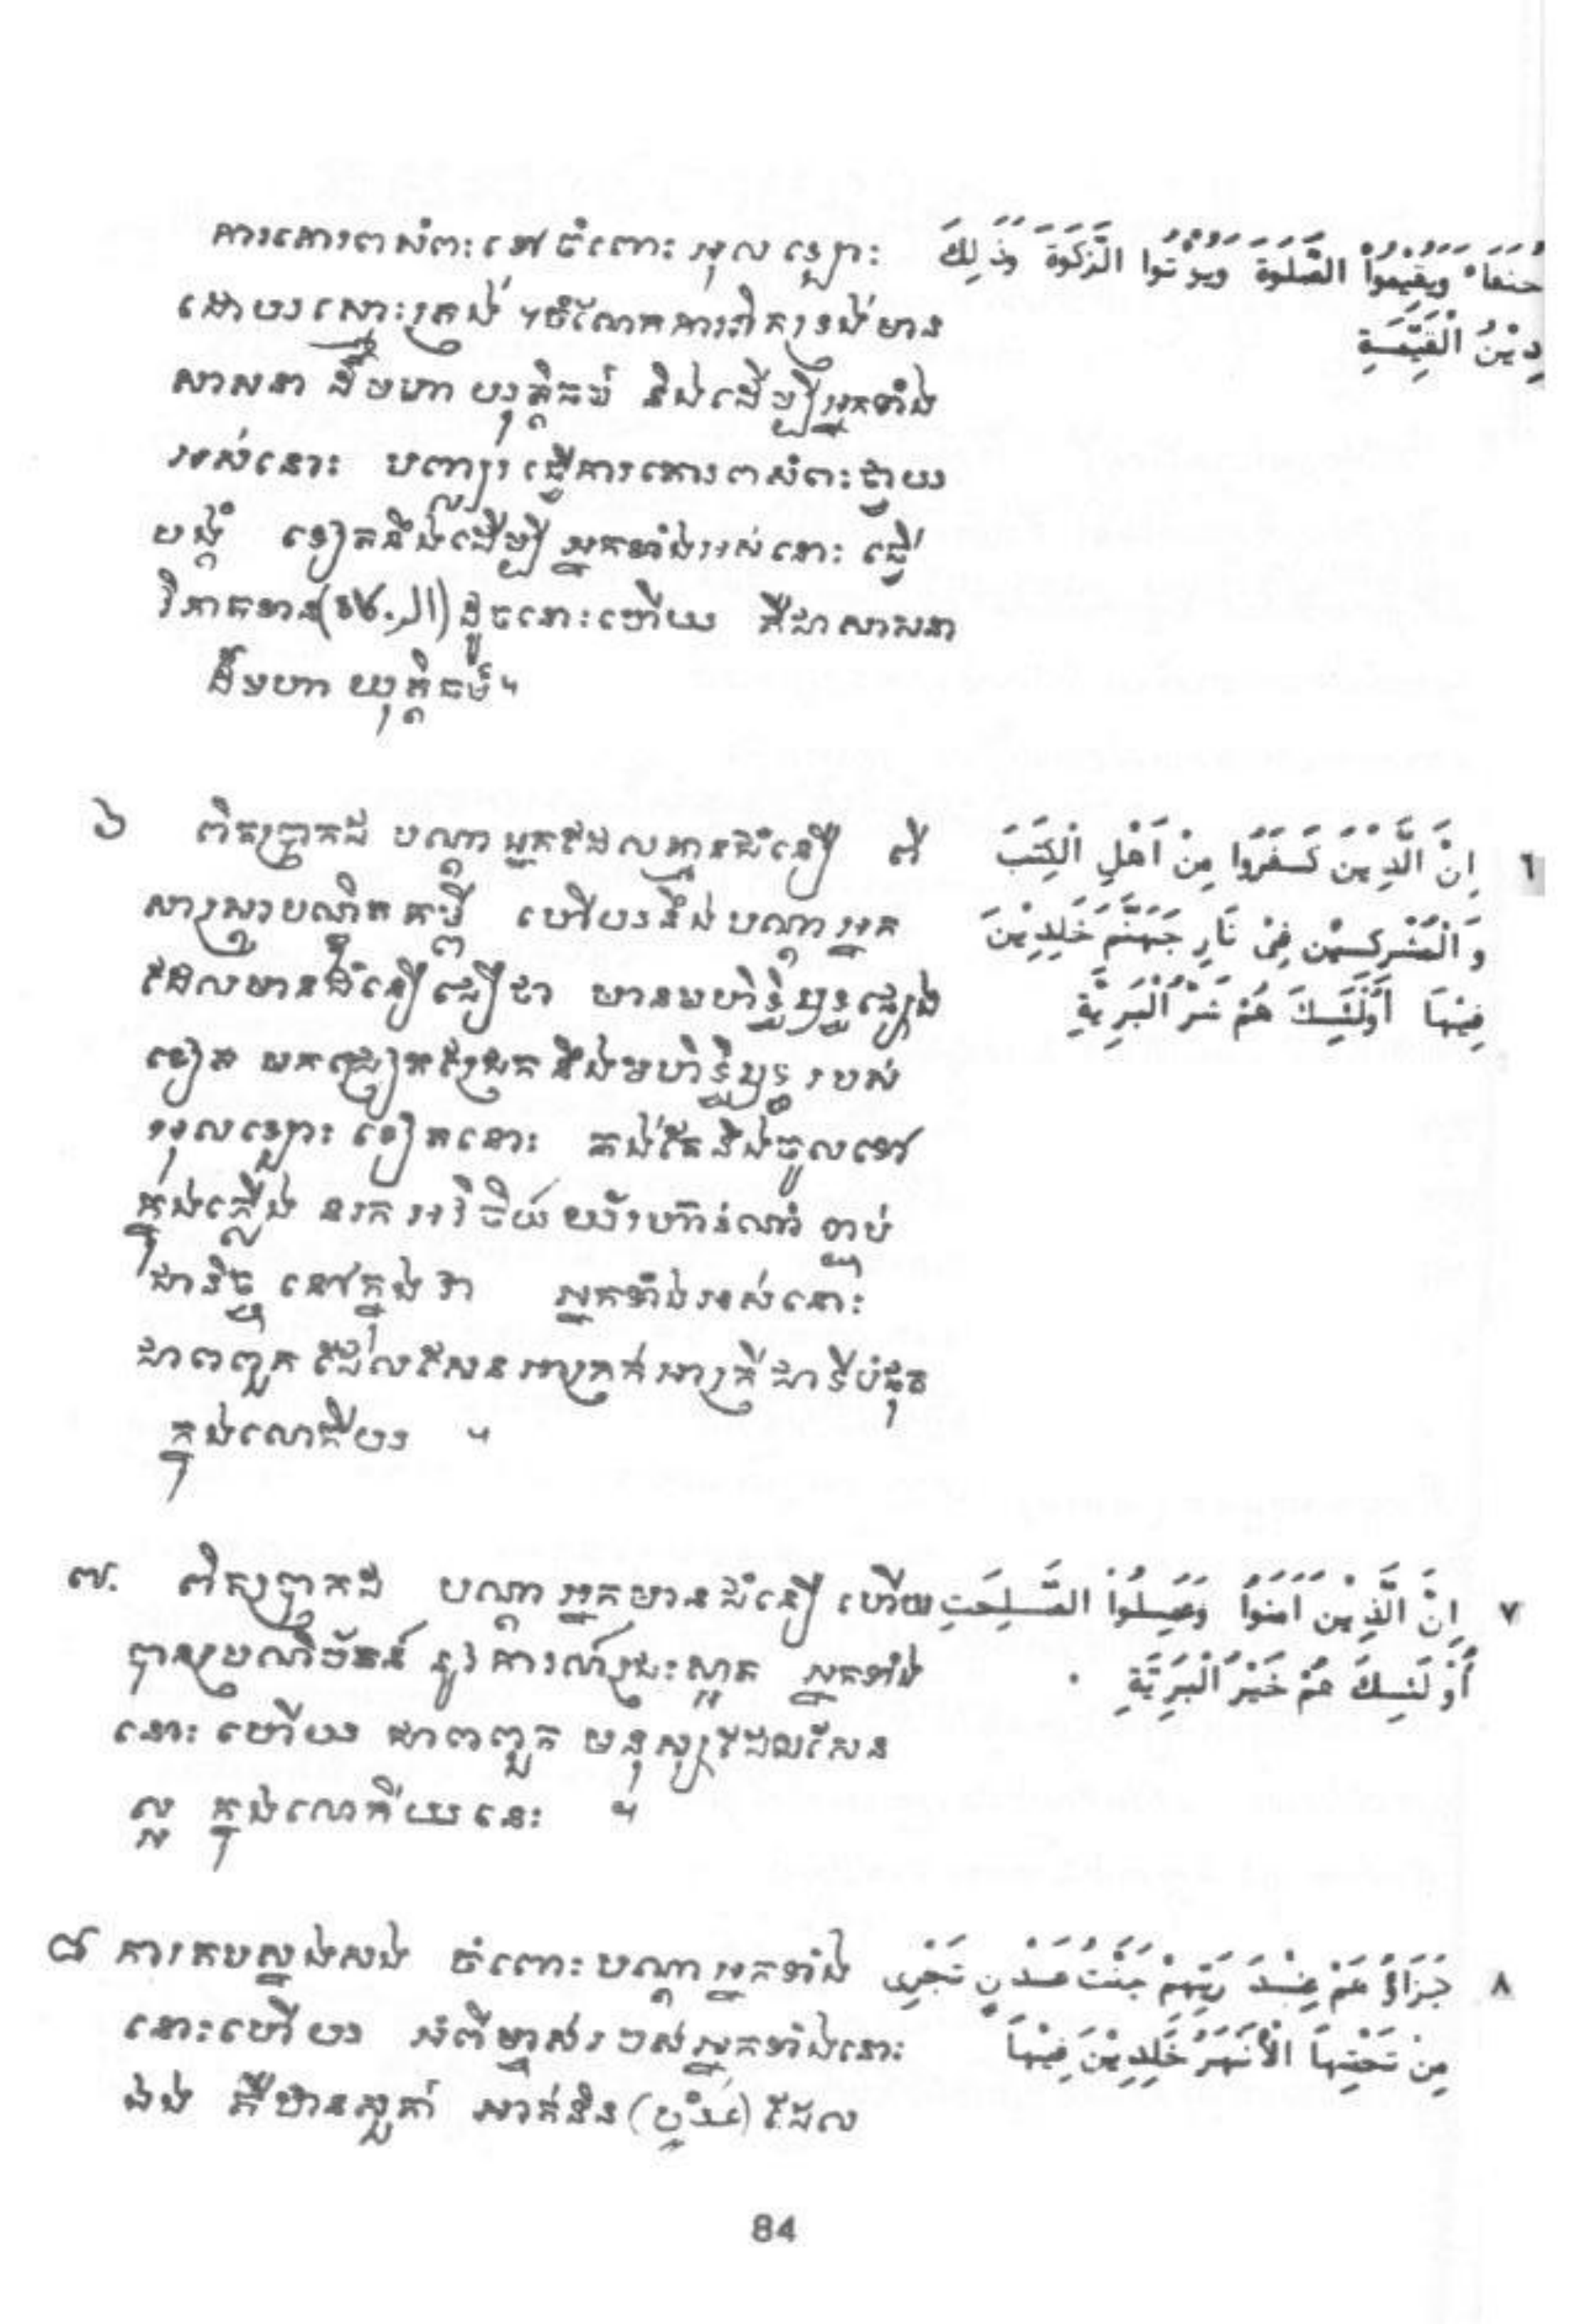 ការគោរពសំពះ ទៅចំពោះ អុលឡោះ
ដោយស្មោះត្រង់ ។ចំណែកការពិតទ្រង់មាន
សាសនា ដ៏មហា យុត្តិធម៌ និងដើម្បីអ្នកទាំង
អស់នោះ បញ្ជា ធ្វើការគោរពសំពះថ្វាយ
បង្គំ ទៀតនឹងដើម្បី អ្នកទាំងអស់នោះ ធ្វើ
វិភាគទាន ដូចនោះហើយ គឺជាសាសនា
ដ៏មហា យុត្តិធម៌។
حُنَفَاءَ وَيُقِيْمُوا الصَّلٰوةَ وَيُؤْتُوا الزَّكٰوةَ وَذٰلِكَ
دِيْنُ الْقَيِّمَةِ
៦ ពិតប្រាកដ បណ្តាអ្នកដែលគ្មានជំនឿ ពី
សាស្រ្តាបណ្ឌិតគម្ពី ហើយនឹងបណ្តាអ្នក
ដែលមានជំនឿជឿថា មានមហិទ្ធិឫទ្ធផ្សេង
ទៀត មកជ្រៀតជ្រែក នឹងមហិទ្ធិឫទ្ធ របស់
អុលឡោះ ទៀតនោះ គង់តែនឹងចូលទៅ
ក្នុងភ្លើង នរក អវិចិយ៍ យ៉ាំរហ៊ាន់ណាំ ខ្ជាប់
ជានិច្ច នៅក្នុងវា អ្នកទាំងអស់នោះ
ជាពពួក ដែលសែនអាក្រក់អាក្រី ជាទីបំផុត
ក្នុងលោកីយ ។
٦ اِنَّ الَّذِيْنَ كَفَرُوا مِنْ اَهْلِ الْكِتٰبِ
وَالْمُشْرِكِيْنَ فِىْ نَارِ جَهَنَّمَ خٰلِدِيْنَ
فِيْهَا اُولٰٓئِكَ هُمْ شَرُّ الْبَرِيَّةِ
៧. ពិតប្រាកដ បណ្តាអ្នកមានជំនឿ ហើយ
បានប្រណិប័តន៍ នូវការណ៍ជ្រះស្អាត អ្នកទាំង
នោះ ហើយ ជាពពួក មនុស្សដែលសែន
ល្អ ក្នុងលោកីយនេះ ។
٧ اِنَّ الَّذِيْنَ اٰمَنُوْا وَعَمِلُوا الصّٰلِحٰتِ
اُولٰٓئِكَ هُمْ خَيْرُ الْبَرِيَّةِ
៨ ការតបស្នងសង ចំពោះបណ្តាអ្នកទាំង
នោះហើយ អំពីម្ចាស់របស់អ្នកទាំងនោះ
ឯង គឺឋានសួគ៌ អាក់និន ដែល
٨ جَزَاؤُهُمْ عِنْدَ رَبِّهِمْ جَنّٰتُ عَدْنٍ تَجْرِى
مِنْ تَحْتِهَا الْاَنْهٰرُ خٰلِدِيْنَ فِيْهَا
84